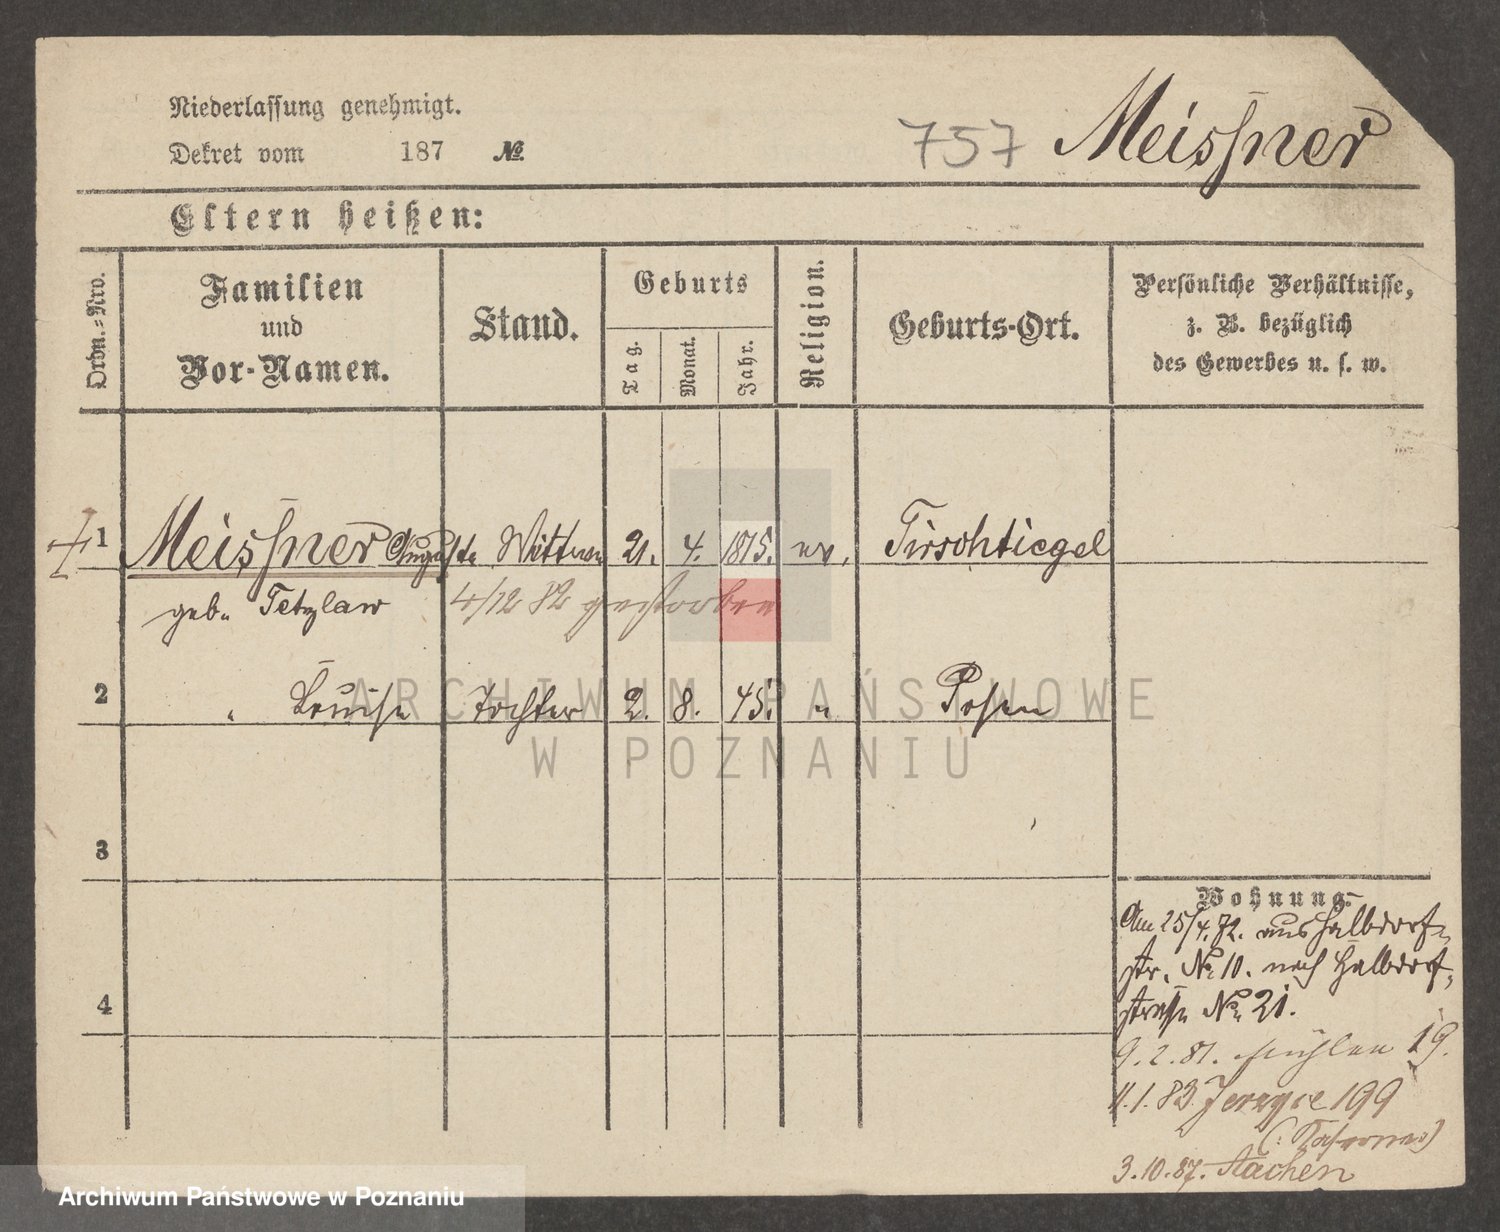 Niederlassung genehmigt.
Dekret vom 187 №
757 Meissner
Eltern heißen:
Ordn.-Nro.
Familien und Vor-Namen.
Stand.
Geburts
Tag.
Monat.
Jahr.
Religion.
Geburts-Ort.
Persönliche Verhältnisse, z. B. bezüglich des Gewerbes u. s. w.
1 Meissner Auguste Wittwe 21. 4. 1815. ev. Tirschtiegel
geb. Tetzlaw 4/12 82 gestorben
2 " Louise Tochter 2. 8. 45. " Posen
3
4
Wohnung.
Am 25/4. 72. aus Halbdorf-
str. № 10. nach Halbdorf-
strasse № 21.
9. 2. 81. Mühlen 19.
11. 1. 83 Jerzyce 199
3. 10. 87. Aachen
ARCHIWUM PAŃSTWOWE
W POZNANIU
Archiwum Państwowe w Poznaniu